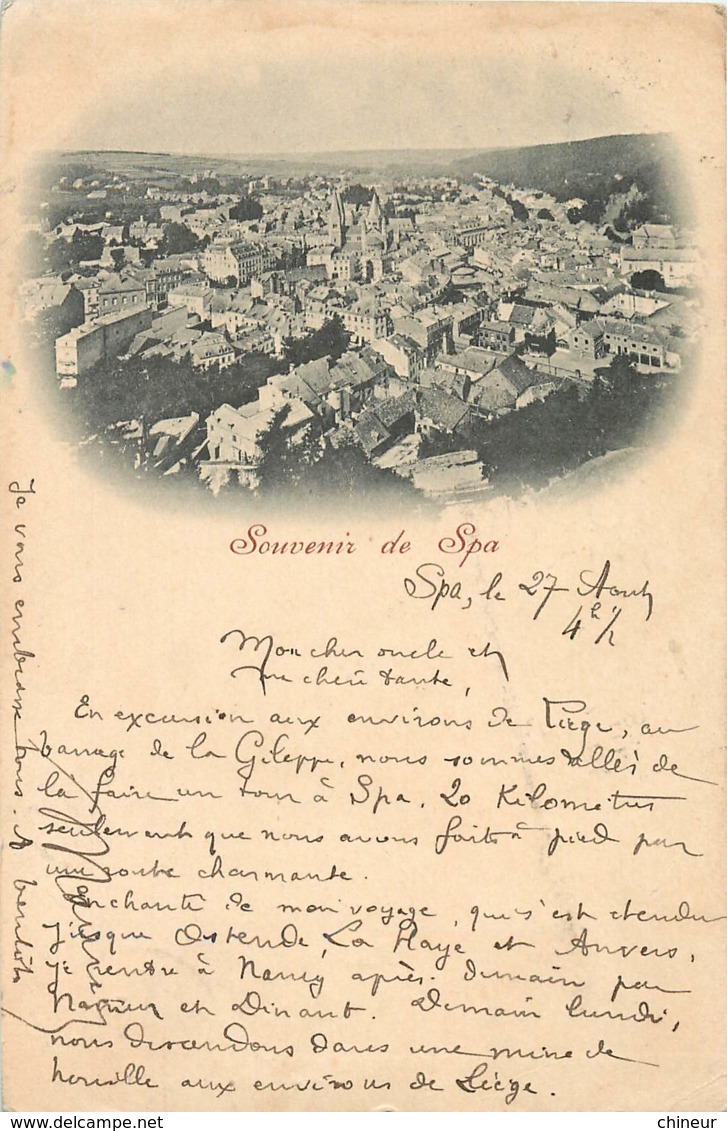 Souvenir de Spa
Spa, le 27 Août
4h ½
Mon cher oncle et
ma chère tante,
En excursion aux environs de Liège, au
barrage de la Gileppe, nous sommes allés de
là faire un tour à Spa. 20 Kilomètres
seulement que nous avons faits à pied par
une route charmante.
Enchanté de mon voyage, qui s'est étendu
jusque Ostende, La Haye et Anvers,
je rentre à Nancy après-demain par
Namur et Dinant. Demain lundi,
nous descendons dans une mine de
houille aux environs de Liège.
Je vous embrasse tous. A bientôt
delcampe.net
chineur